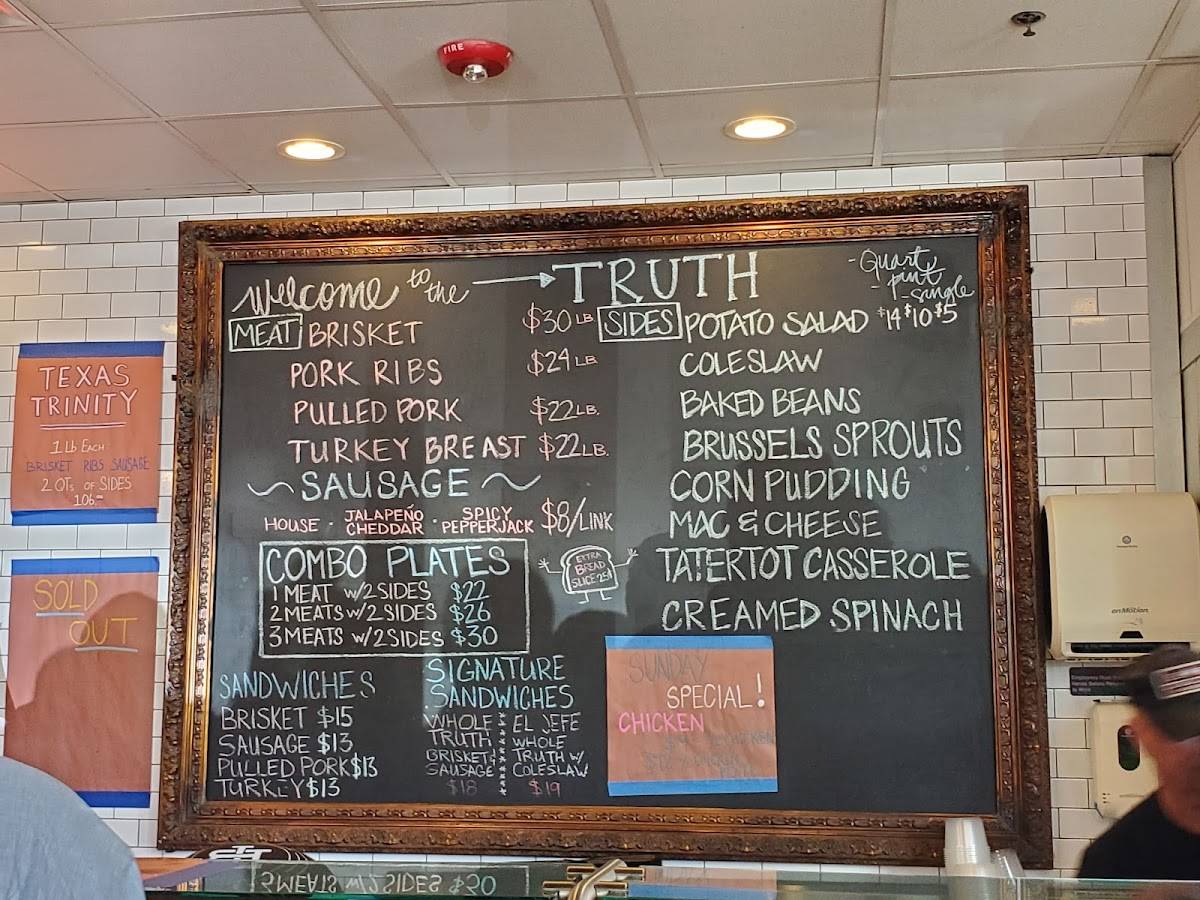 FIRE
Welcome to the TRUTH
- Quart
- pint
- single
MEAT BRISKET $30 LB
PORK RIBS $24 LB
PULLED PORK $22 LB.
TURKEY BREAST $22 LB.
~ SAUSAGE ~
HOUSE · JALAPEÑO CHEDDAR · SPICY PEPPERJACK $8/LINK
COMBO PLATES
1 MEAT W/2 SIDES $22
2 MEATS W/2 SIDES $26
3 MEATS W/2 SIDES $30
EXTRA
BREAD
SLICE 25¢
SIDES POTATO SALAD $14 $10 $5
COLESLAW
BAKED BEANS
BRUSSELS SPROUTS
CORN PUDDING
MAC & CHEESE
TATERTOT CASSEROLE
CREAMED SPINACH
SANDWICHES
BRISKET $15
SAUSAGE $13
PULLED PORK $13
TURKEY $13
SIGNATURE
SANDWICHES
WHOLE
TRUTH
BRISKET &
SAUSAGE
$18
EL JEFE
WHOLE
TRUTH W/
COLESLAW
$19
SUNDAY
SPECIAL!
CHICKEN
TEXAS
TRINITY
1 Lb EACH
BRISKET RIBS SAUSAGE
2 QTs OF SIDES
106.00
SOLD
OUT
enMotion